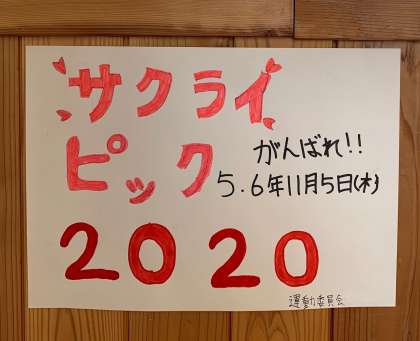 サクライ
ピック
がんばれ!!
5.6年11月5日(木)
2020
運動委員会